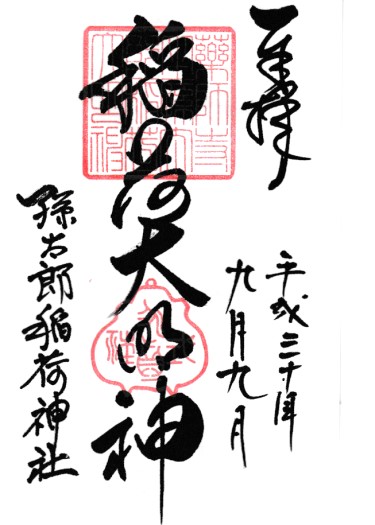 奉拝
平成三十年
九月九日
稲荷大明神
孫太郎稲荷神社